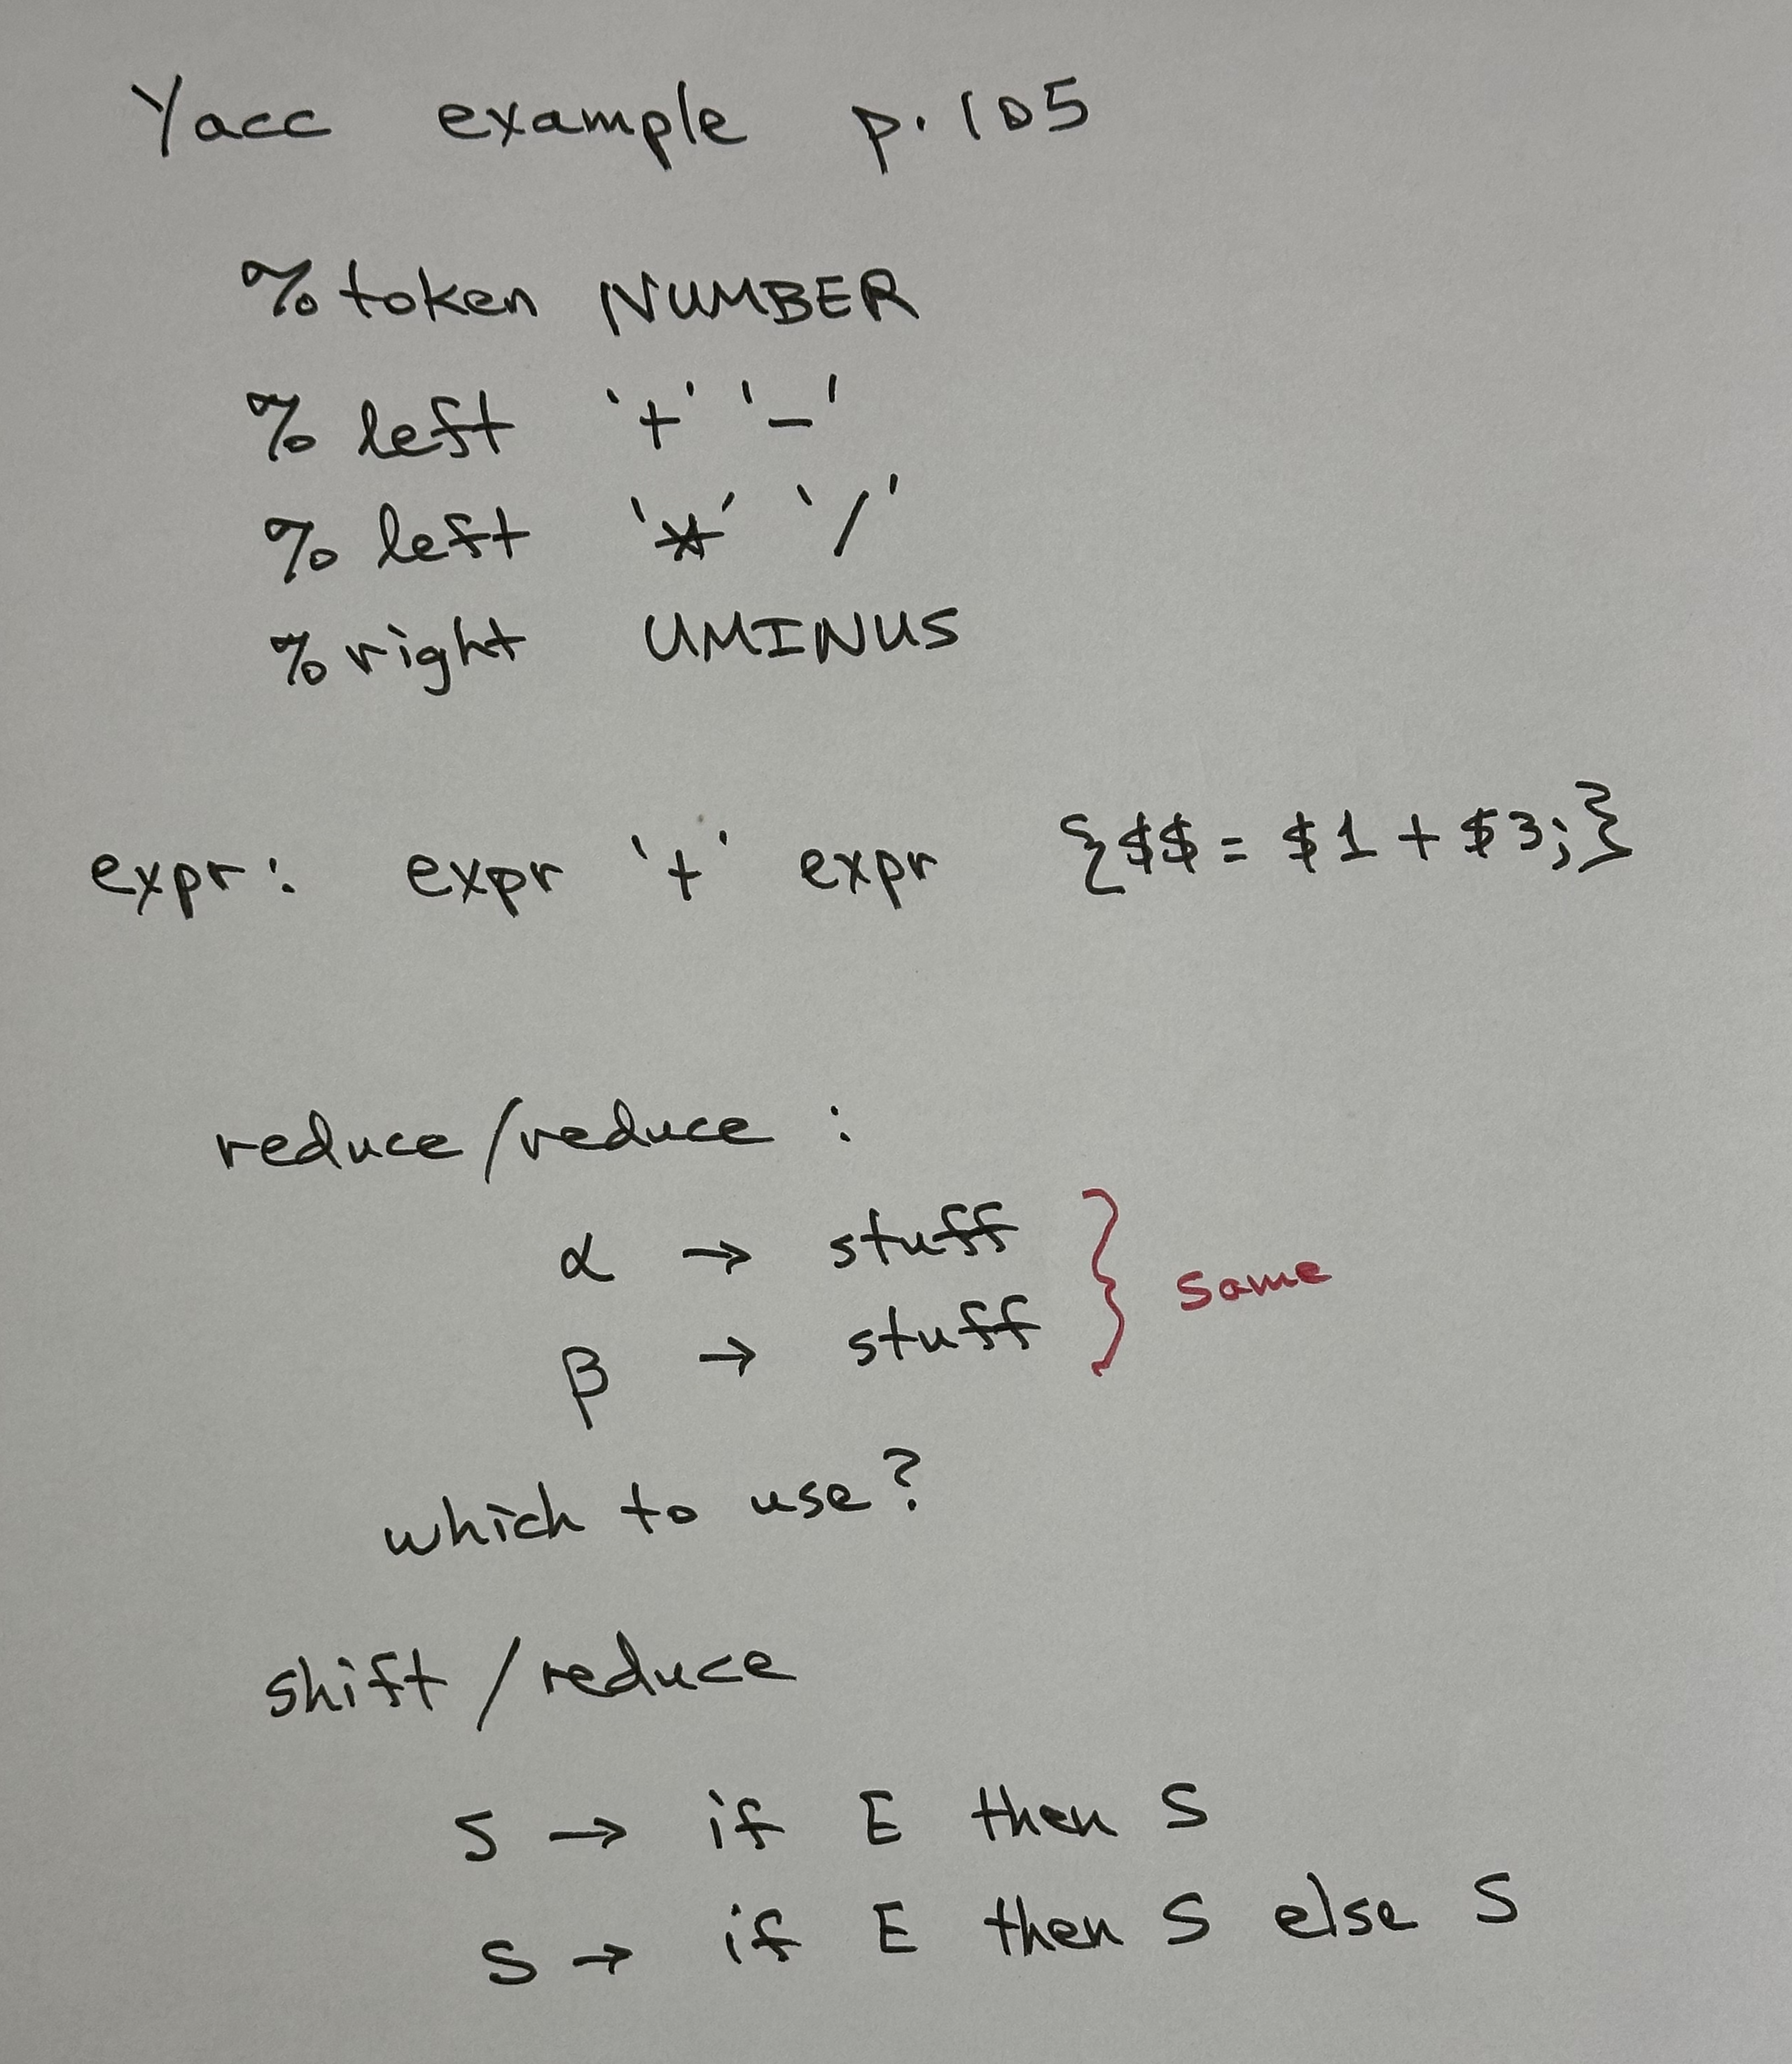 Yacc example p. 105
% token NUMBER
% left '+' '-'
% left '*' '/'
% right UMINUS
expr: expr '+' expr {$$ = $1 + $3;}
reduce/reduce :
α → stuff
β → stuff
} same
which to use?
shift/reduce
S → if E then S
S → if E then S else S